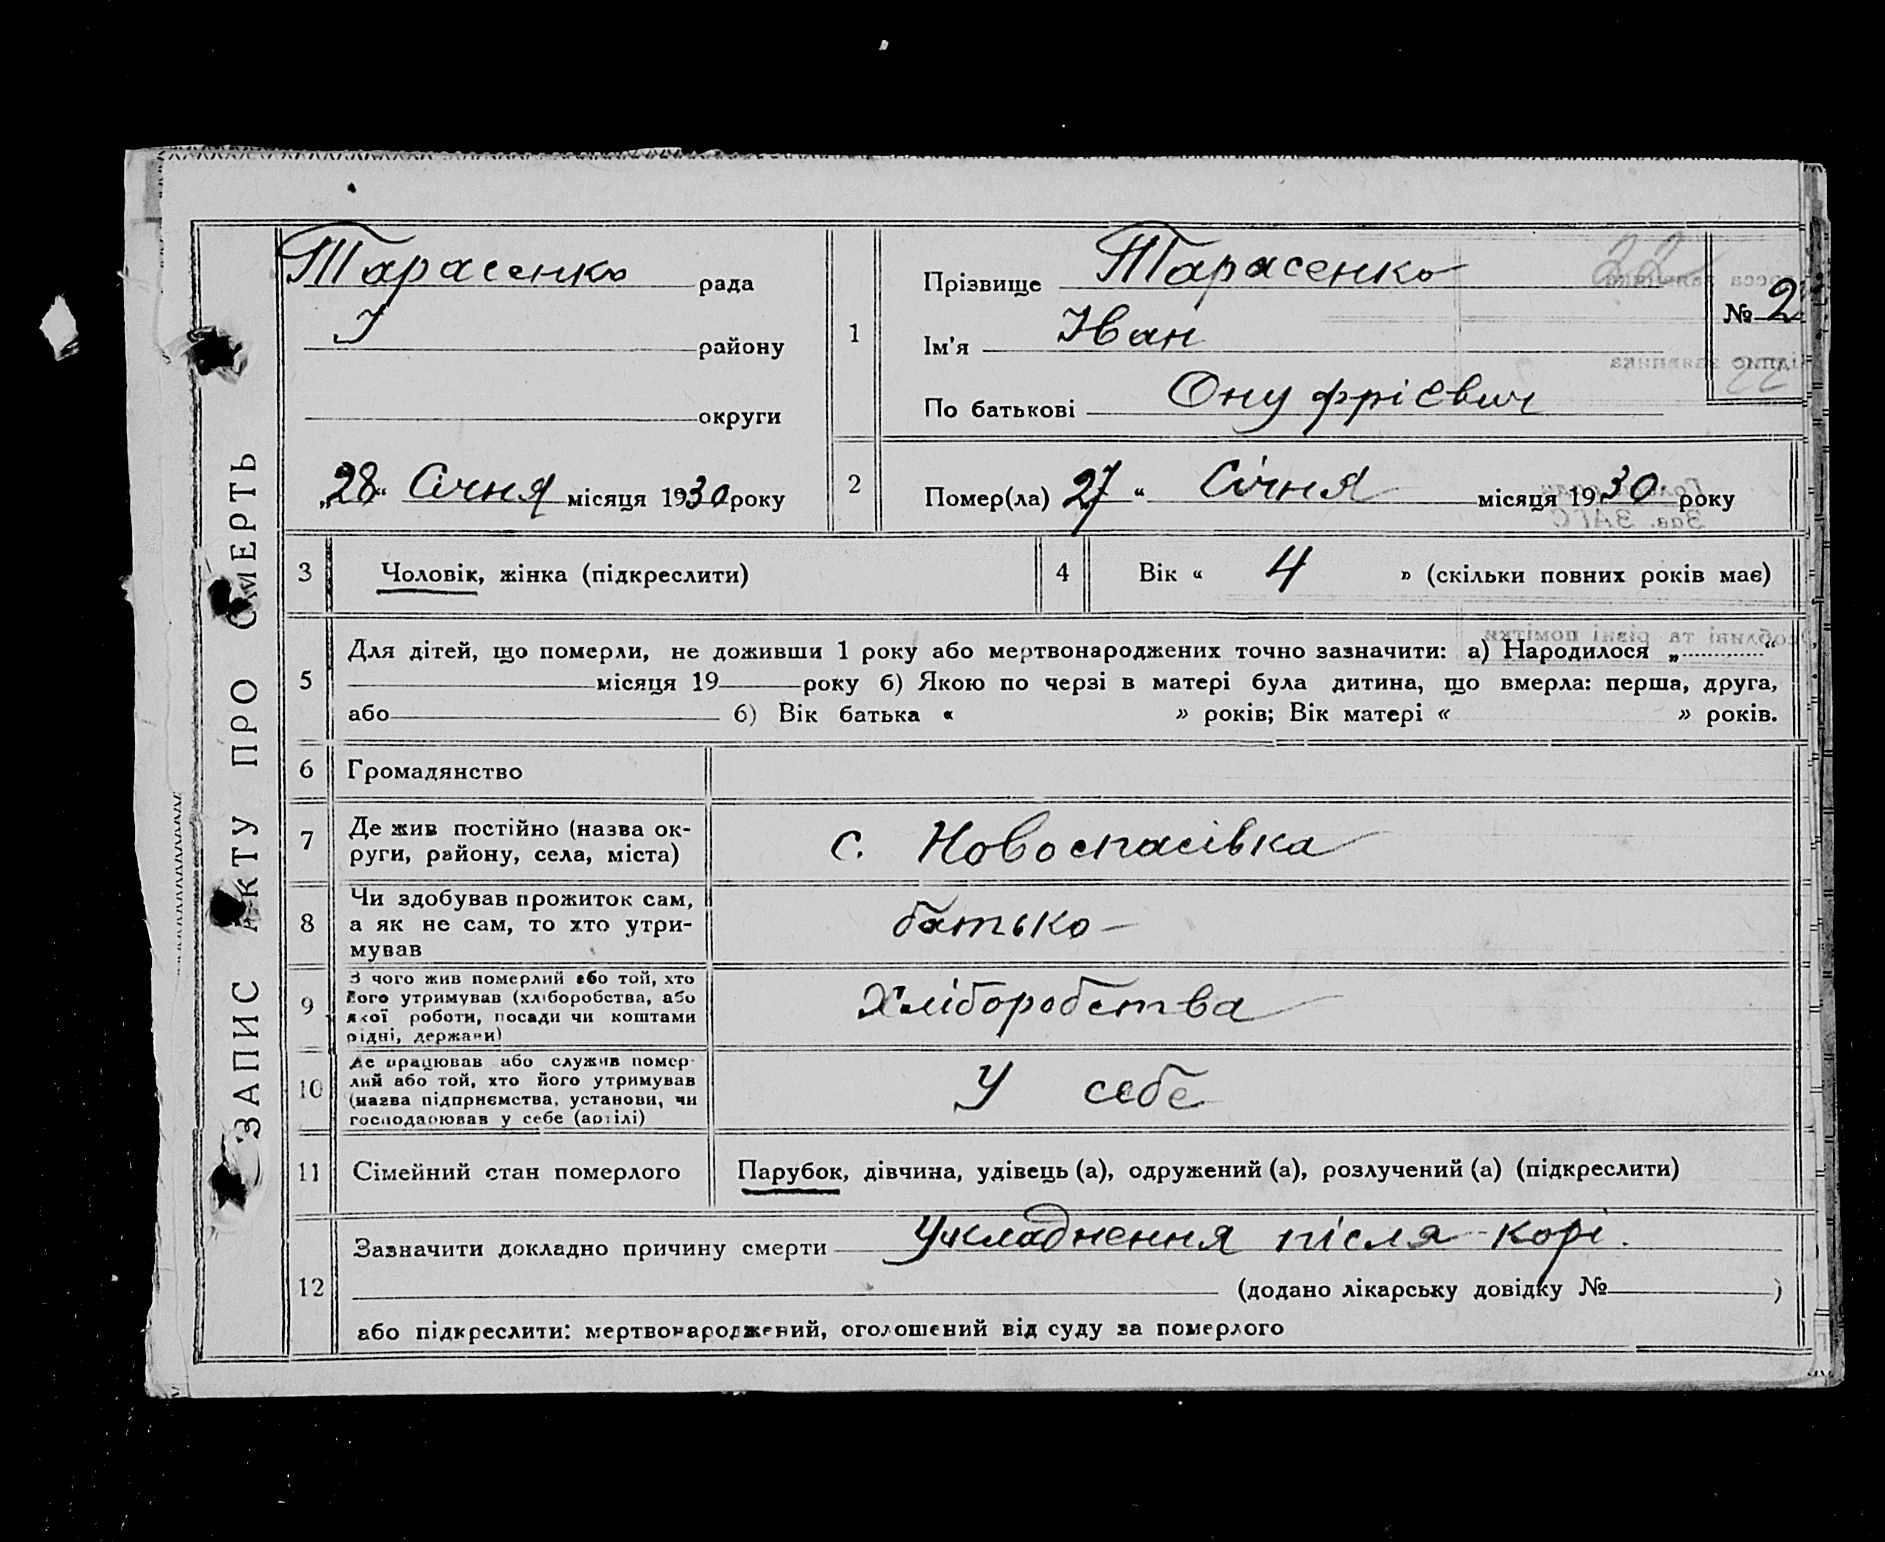 ЗАПИС АКТУ ПРО СМЕРТЬ
Тарасенко рада
У району
округи
„28“ Січня місяця 1930 року
1
Прізвище Тарасенко
Ім'я Іван
По батькові Онуфрієвич
№ 2
2
Помер(ла) 27 “ Січня місяця 1930 року
3 Чоловік, жінка (підкреслити)
4 Вік « 4 » (скільки повних років має)
5
Для дітей, що померли, не доживши 1 року або мертвонароджених точно зазначити: а) Народилося „ “
місяця 19 року б) Якою по черзі в матері була дитина, що вмерла: перша, друга,
або б) Вік батька « » років; Вік матері « » років.
6 Громадянство
7 Де жив постійно (назва ок-
руги, району, села, міста)
с. Новоспасівка
8 Чи здобував прожиток сам,
а як не сам, то хто утри-
мував
батько
9 З чого жив померлий або той, хто
його утримував (хліборобства, або
якої роботи, посади чи коштами
рідні, держави)
Хліборобства
10 Де працював або служив помер-
лий або той, хто його утримував
(назва підприємства, установи, чи
господарював у себе (артілі)
У себе
11 Сімейний стан померлого
Парубок, дівчина, удівець (а), одружений (а), розлучений (а) (підкреслити)
12
Зазначити докладно причину смерти Укладнення після корі.
(додано лікарську довідку № )
або підкреслити: мертвонароджений, оголошений від суду за померлого